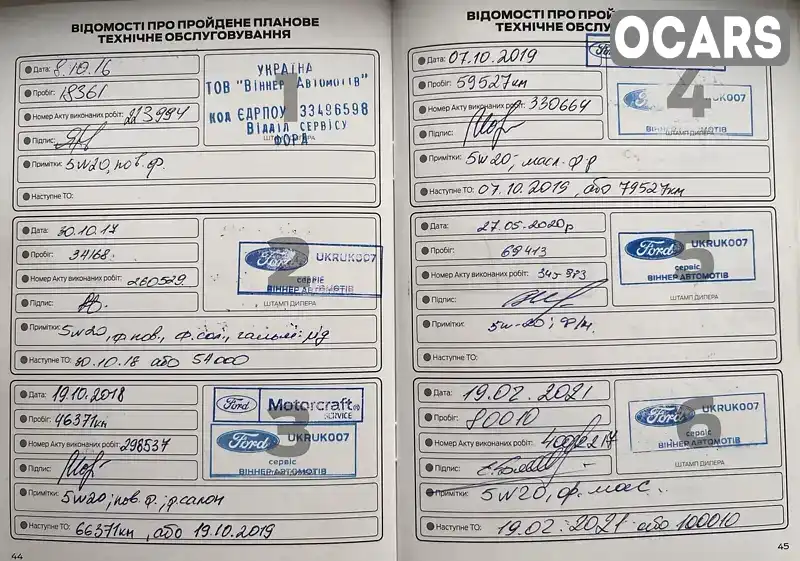 ВІДОМОСТІ ПРО ПРОЙДЕНЕ ПЛАНОВЕ
ТЕХНІЧНЕ ОБСЛУГОВУВАННЯ
Дата: 8.10.16
Пробіг: 18361
Номер Акту виконаних робіт: 213994
Підпис:
Примітки: 5W20, пов. ф.
Наступне ТО:
1
УКРАЇНА
ТОВ "Віннер Автомотів"
код ЄДРПОУ 33496598
Відділ сервісу
ФОРД
Дата: 30.10.17
Пробіг: 34168
Номер Акту виконаних робіт: 260529
Підпис:
Примітки: 5W20, ф.пов., ф.сал., гальм. рід
Наступне ТО: 30.10.18 або 54000
2
Ford UKRUK007
сервіс
ВІННЕР АВТОМОТІВ
ШТАМП ДИЛЕРА
Дата: 19.10.2018
Пробіг: 46371км
Номер Акту виконаних робіт: 298537
Підпис:
Примітки: 5W20; пов.ф.; ф.салон
Наступне ТО: 66371км, або 19.10.2019
3
Ford Motorcraft
SERVICE
Ford UKRUK007
сервіс
ВІННЕР АВТОМОТІВ
44
ВІДОМОСТІ ПРО
ТЕХНІЧНЕ
OCARS
Дата: 07.10.2019
Пробіг: 59527км
Номер Акту виконаних робіт: 330664
Підпис:
Примітки: 5W20; масл. ф-р
Наступне ТО: 07.10.2019, або 79527км
4
UKRUK007
ВІННЕР АВТОМОТІВ
Дата: 27.05.2020р
Пробіг: 69413
Номер Акту виконаних робіт: 345983
Підпис:
Примітки: 5W-20; Ф/м.
Наступне ТО:
5
Ford UKRUK007
сервіс
ВІННЕР АВТОМОТІВ
ШТАМП ДИЛЕРА
Дата: 19.02.2021
Пробіг: 80010
Номер Акту виконаних робіт:
Підпис:
Примітки: 5W20, ф.мас.
Наступне ТО: 19.02.2021 або 100010
6
Ford UKRUK007
сервіс
ВІННЕР АВТОМОТІВ
ШТАМП ДИЛЕРА
45